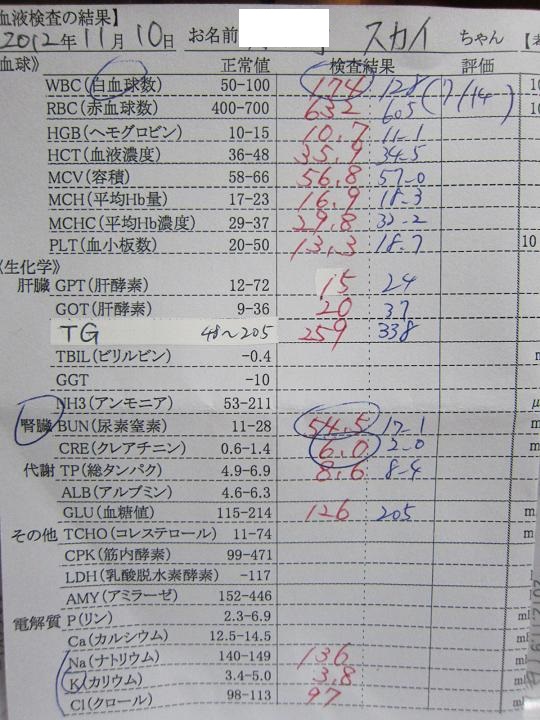 血液検査の結果】
2012年 11月 10日 お名前 スカイ ちゃん 【
血球》 正常値 検査結果 評価
WBC(白血球数) 50-100 174 128 (7/14) 10
RBC(赤血球数) 400-700 632 605 10
HGB(ヘモグロビン) 10-15 10.7 11-1
HCT(血液濃度) 36-48 35.9 34-5
MCV(容積) 58-66 56.8 57-0
MCH(平均Hb量) 17-23 16.9 18-3
MCHC(平均Hb濃度) 29-37 29.8 32-2
PLT(血小板数) 20-50 13.3 18.7 10
《生化学》
肝臓 GPT(肝酵素) 12-72 15 24
GOT(肝酵素) 9-36 20 37
TG 48~205 259 338
TBIL(ビリルビン) -0.4
GGT -10
NH3(アンモニア) 53-211 μ
腎臓 BUN(尿素窒素) 11-28 54.5 17-1 m
CRE(クレアチニン) 0.6-1.4 6.0 2-0 m
代謝 TP(総タンパク) 4.9-6.9 8.6 8-4
ALB(アルブミン) 4.6-6.3
GLU(血糖値) 115-214 126 205 m
その他 TCHO(コレステロール) 11-74 m
CPK(筋内酵素) 99-471
LDH(乳酸脱水素酵素) -117
AMY(アミラーゼ) 152-446
電解質 P(リン) 2.3-6.9
Ca(カルシウム) 12.5-14.5
Na(ナトリウム) 140-149 136
K(カリウム) 3.4-5.0 3.8
Cl(クロール) 98-113 97